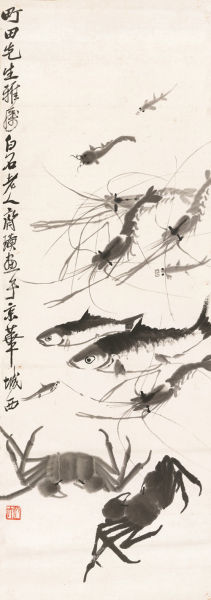 町田先生雅属白石老人齐璜画于京华城西